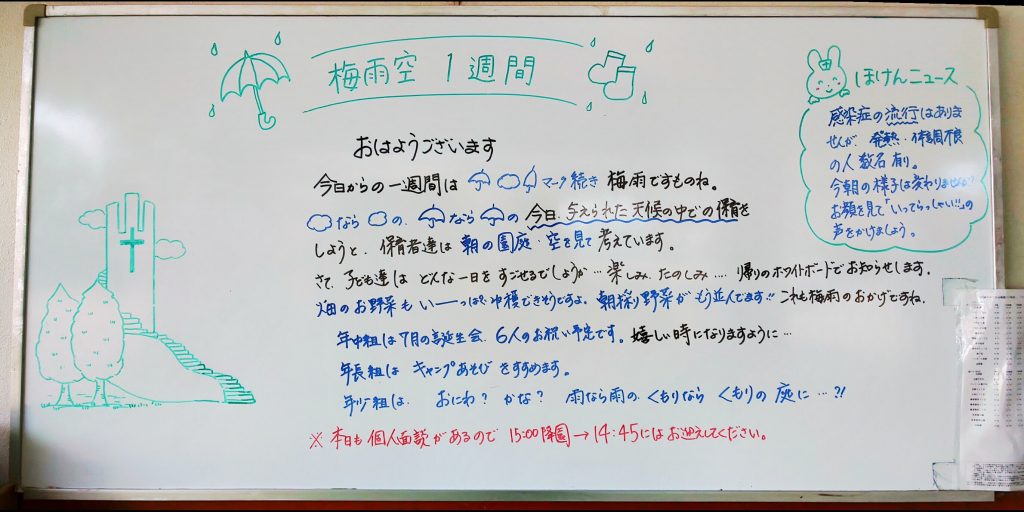 梅雨空 1週間
おはようございます
今日からの一週間は マーク続き 梅雨ですものね。
なら の、 なら の 今日、与えられた天候の中での保育を
しようと、保育者達は 朝の園庭・空を見て 考えています。
さて、子ども達は どんな一日をすごせるでしょうか…楽しみ、たのしみ…. 帰りのホワイトボードでお知らせします。
畑のお野菜も いーーっぱい収穫できそうですよ。朝採り野菜がもう並んでます!! これも梅雨のおかげですね。
年中組は7月の誕生会、6人のお祝い予定です。嬉しい時になりますように…
年長組は キャンプあそび をすすめます。
年少組は、 おにわ? かな? 雨なら雨の、くもりなら くもりの 庭に…?!
※ 本日も個人面談があるので 15:00降園→14:45にはお迎えしてください。
ほけんニュース
感染症の流行はありま
せんが、発熱・体調不良
の人数名有。
今朝の様子は変わりませんか?
お顔を見て「いってらっしゃい!!」の
声をかけましょう。